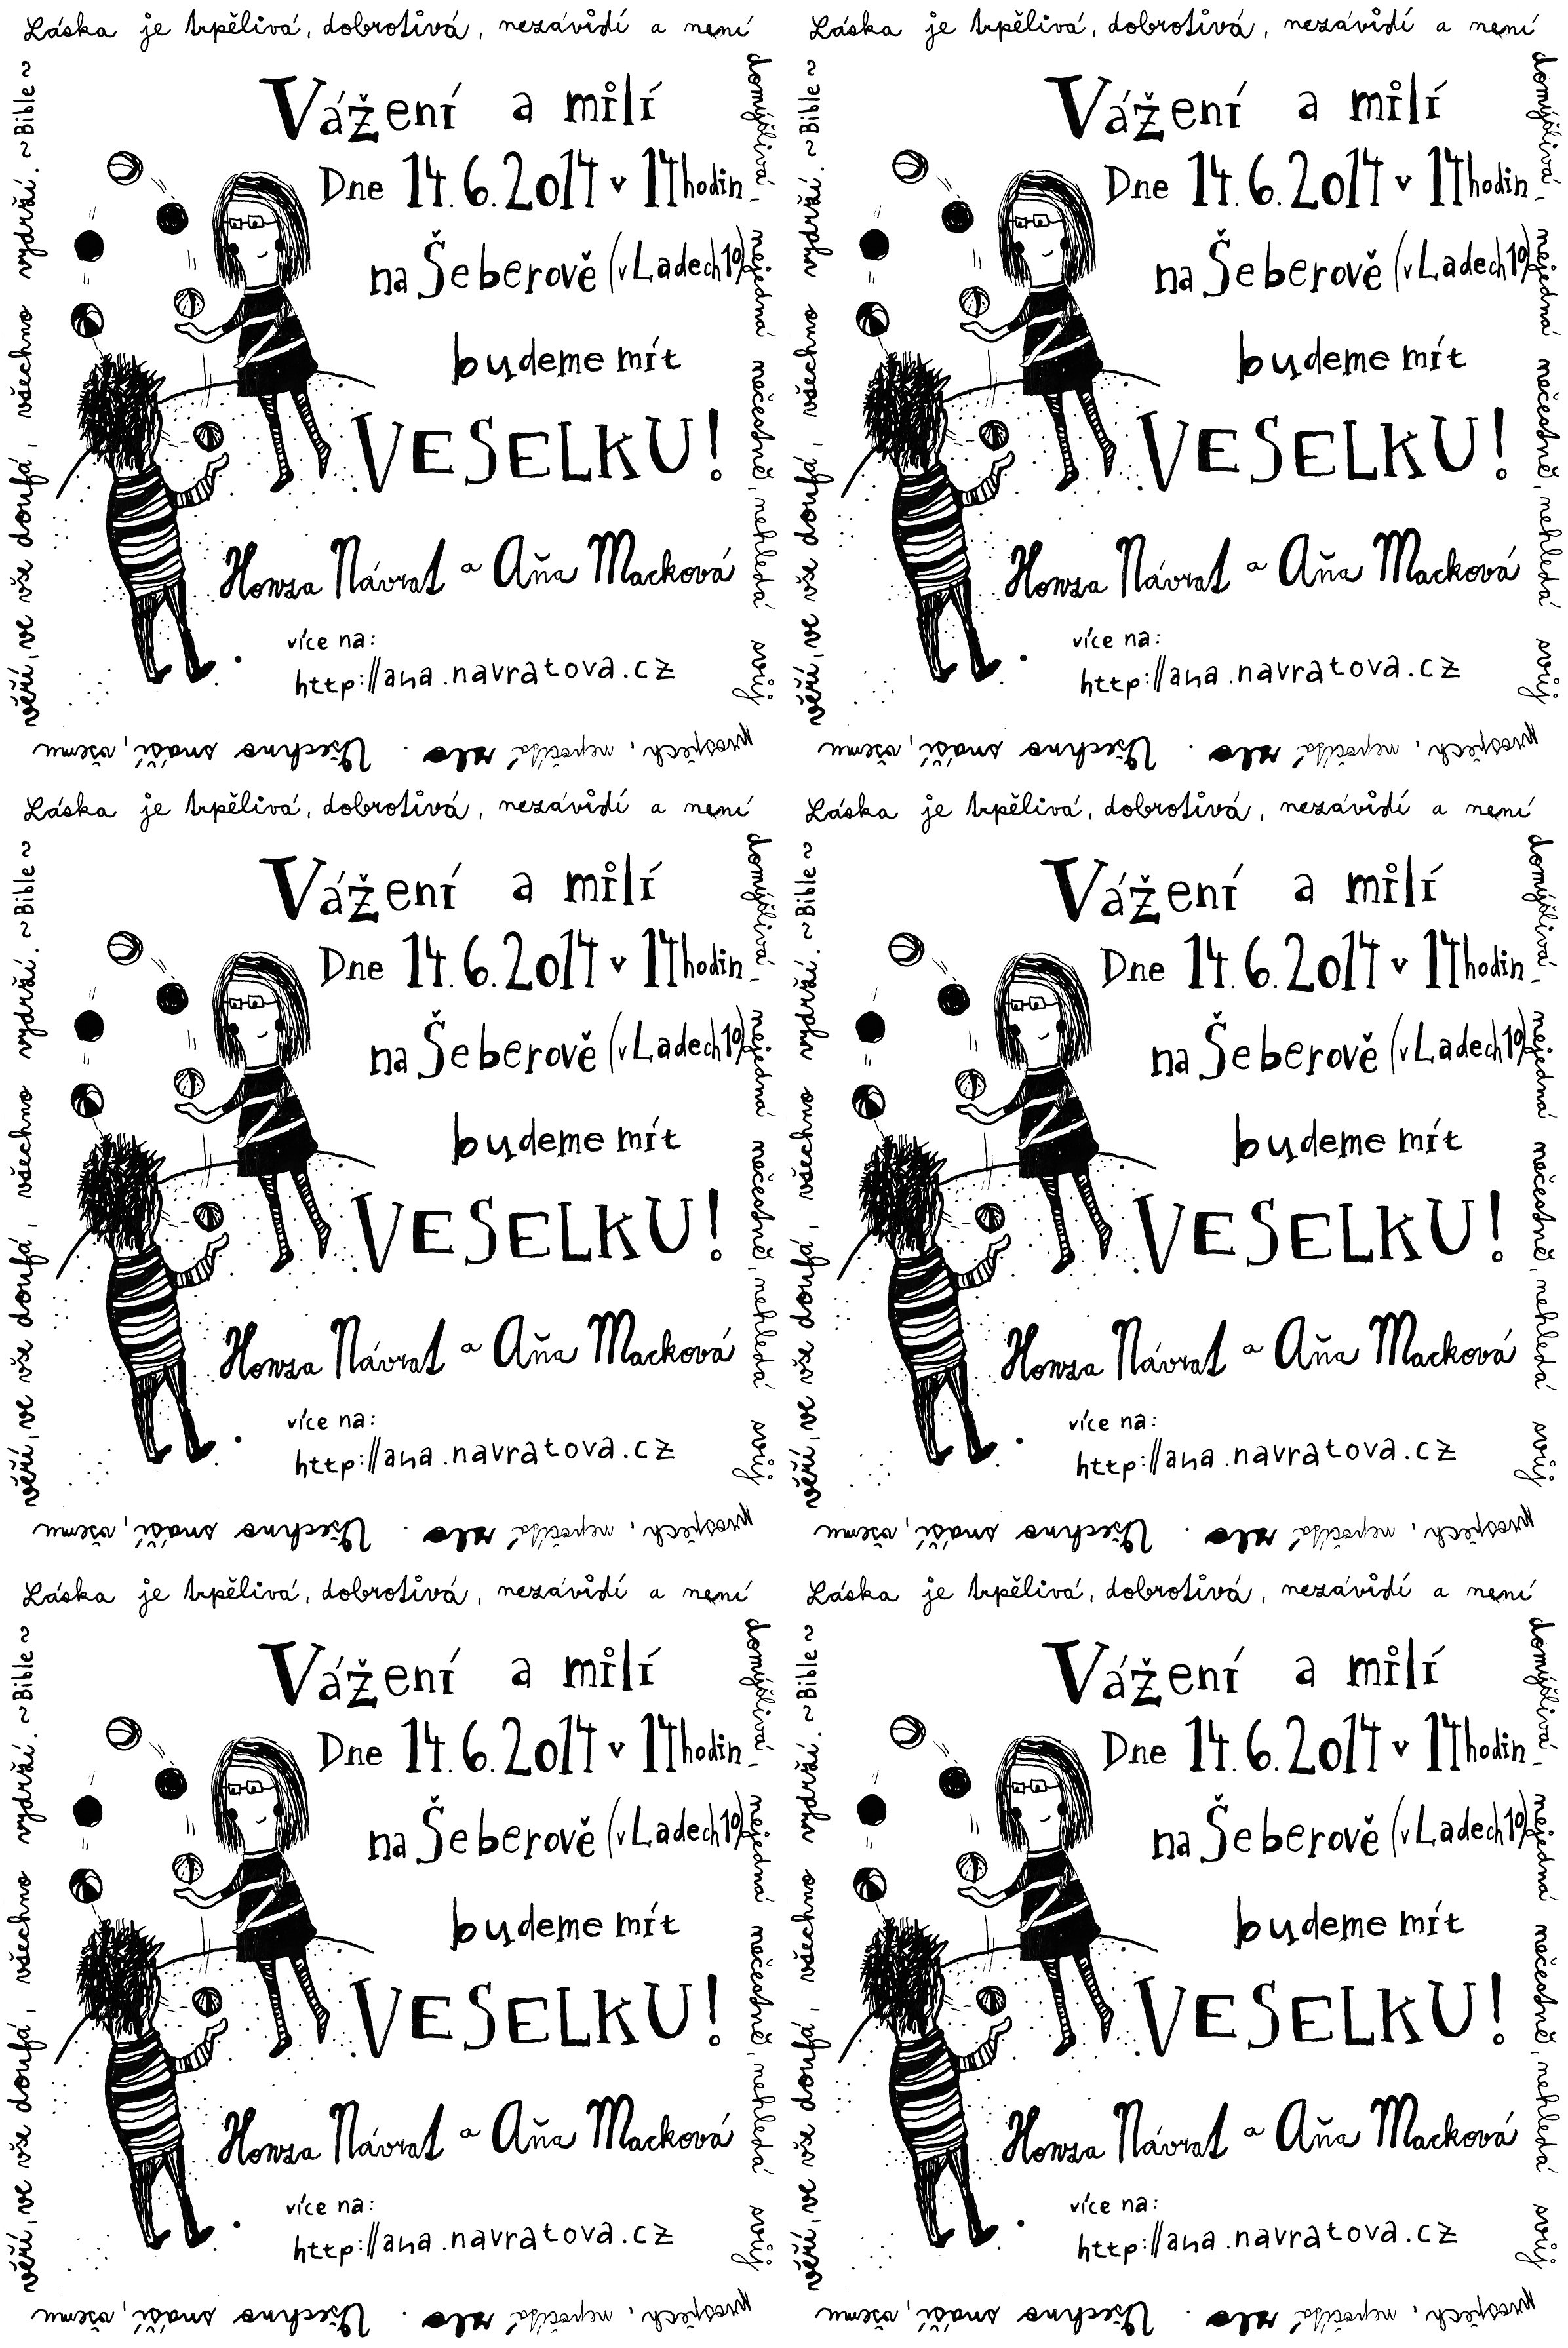 Láska je trpělivá, dobrotivá, nezávidí a není
domýšlivá, nejedná nečestně, nehledá svůj
prospěch, nepočítá zlo. Všechno snáší, všemu
věří, ve vše doufá, všechno vydrží. ~Bible~
Vážení a milí
Dne 14.6.2014 v 14hodin
na Šeberově (v Ladech 10)
budeme mít
VESELKU!
Honza Návrat a Aňa Macková
více na:
http://ana.navratova.cz
Láska je trpělivá, dobrotivá, nezávidí a není
domýšlivá, nejedná nečestně, nehledá svůj
prospěch, nepočítá zlo. Všechno snáší, všemu
věří, ve vše doufá, všechno vydrží. ~Bible~
Vážení a milí
Dne 14.6.2014 v 14hodin
na Šeberově (v Ladech 10)
budeme mít
VESELKU!
Honza Návrat a Aňa Macková
více na:
http://ana.navratova.cz
Láska je trpělivá, dobrotivá, nezávidí a není
domýšlivá, nejedná nečestně, nehledá svůj
prospěch, nepočítá zlo. Všechno snáší, všemu
věří, ve vše doufá, všechno vydrží. ~Bible~
Vážení a milí
Dne 14.6.2014 v 14hodin
na Šeberově (v Ladech 10)
budeme mít
VESELKU!
Honza Návrat a Aňa Macková
více na:
http://ana.navratova.cz
Láska je trpělivá, dobrotivá, nezávidí a není
domýšlivá, nejedná nečestně, nehledá svůj
prospěch, nepočítá zlo. Všechno snáší, všemu
věří, ve vše doufá, všechno vydrží. ~Bible~
Vážení a milí
Dne 14.6.2014 v 14hodin
na Šeberově (v Ladech 10)
budeme mít
VESELKU!
Honza Návrat a Aňa Macková
více na:
http://ana.navratova.cz
Láska je trpělivá, dobrotivá, nezávidí a není
domýšlivá, nejedná nečestně, nehledá svůj
prospěch, nepočítá zlo. Všechno snáší, všemu
věří, ve vše doufá, všechno vydrží. ~Bible~
Vážení a milí
Dne 14.6.2014 v 14hodin
na Šeberově (v Ladech 10)
budeme mít
VESELKU!
Honza Návrat a Aňa Macková
více na:
http://ana.navratova.cz
Láska je trpělivá, dobrotivá, nezávidí a není
domýšlivá, nejedná nečestně, nehledá svůj
prospěch, nepočítá zlo. Všechno snáší, všemu
věří, ve vše doufá, všechno vydrží. ~Bible~
Vážení a milí
Dne 14.6.2014 v 14hodin
na Šeberově (v Ladech 10)
budeme mít
VESELKU!
Honza Návrat a Aňa Macková
více na:
http://ana.navratova.cz